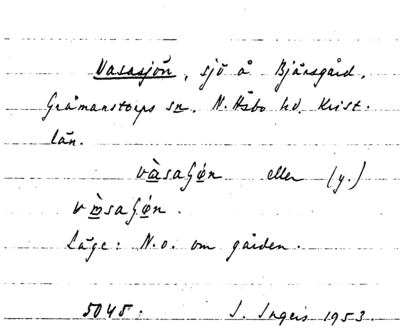 Vasasjön, sjö å Bjärsgård,
Gråmanstorps sn. N. Åsbo hd. Krist.
län.
vàsaʃǿn eller (y.)
saʃǿn.
Läge: N.o. om gården.
5045. J. Ingers 1953.